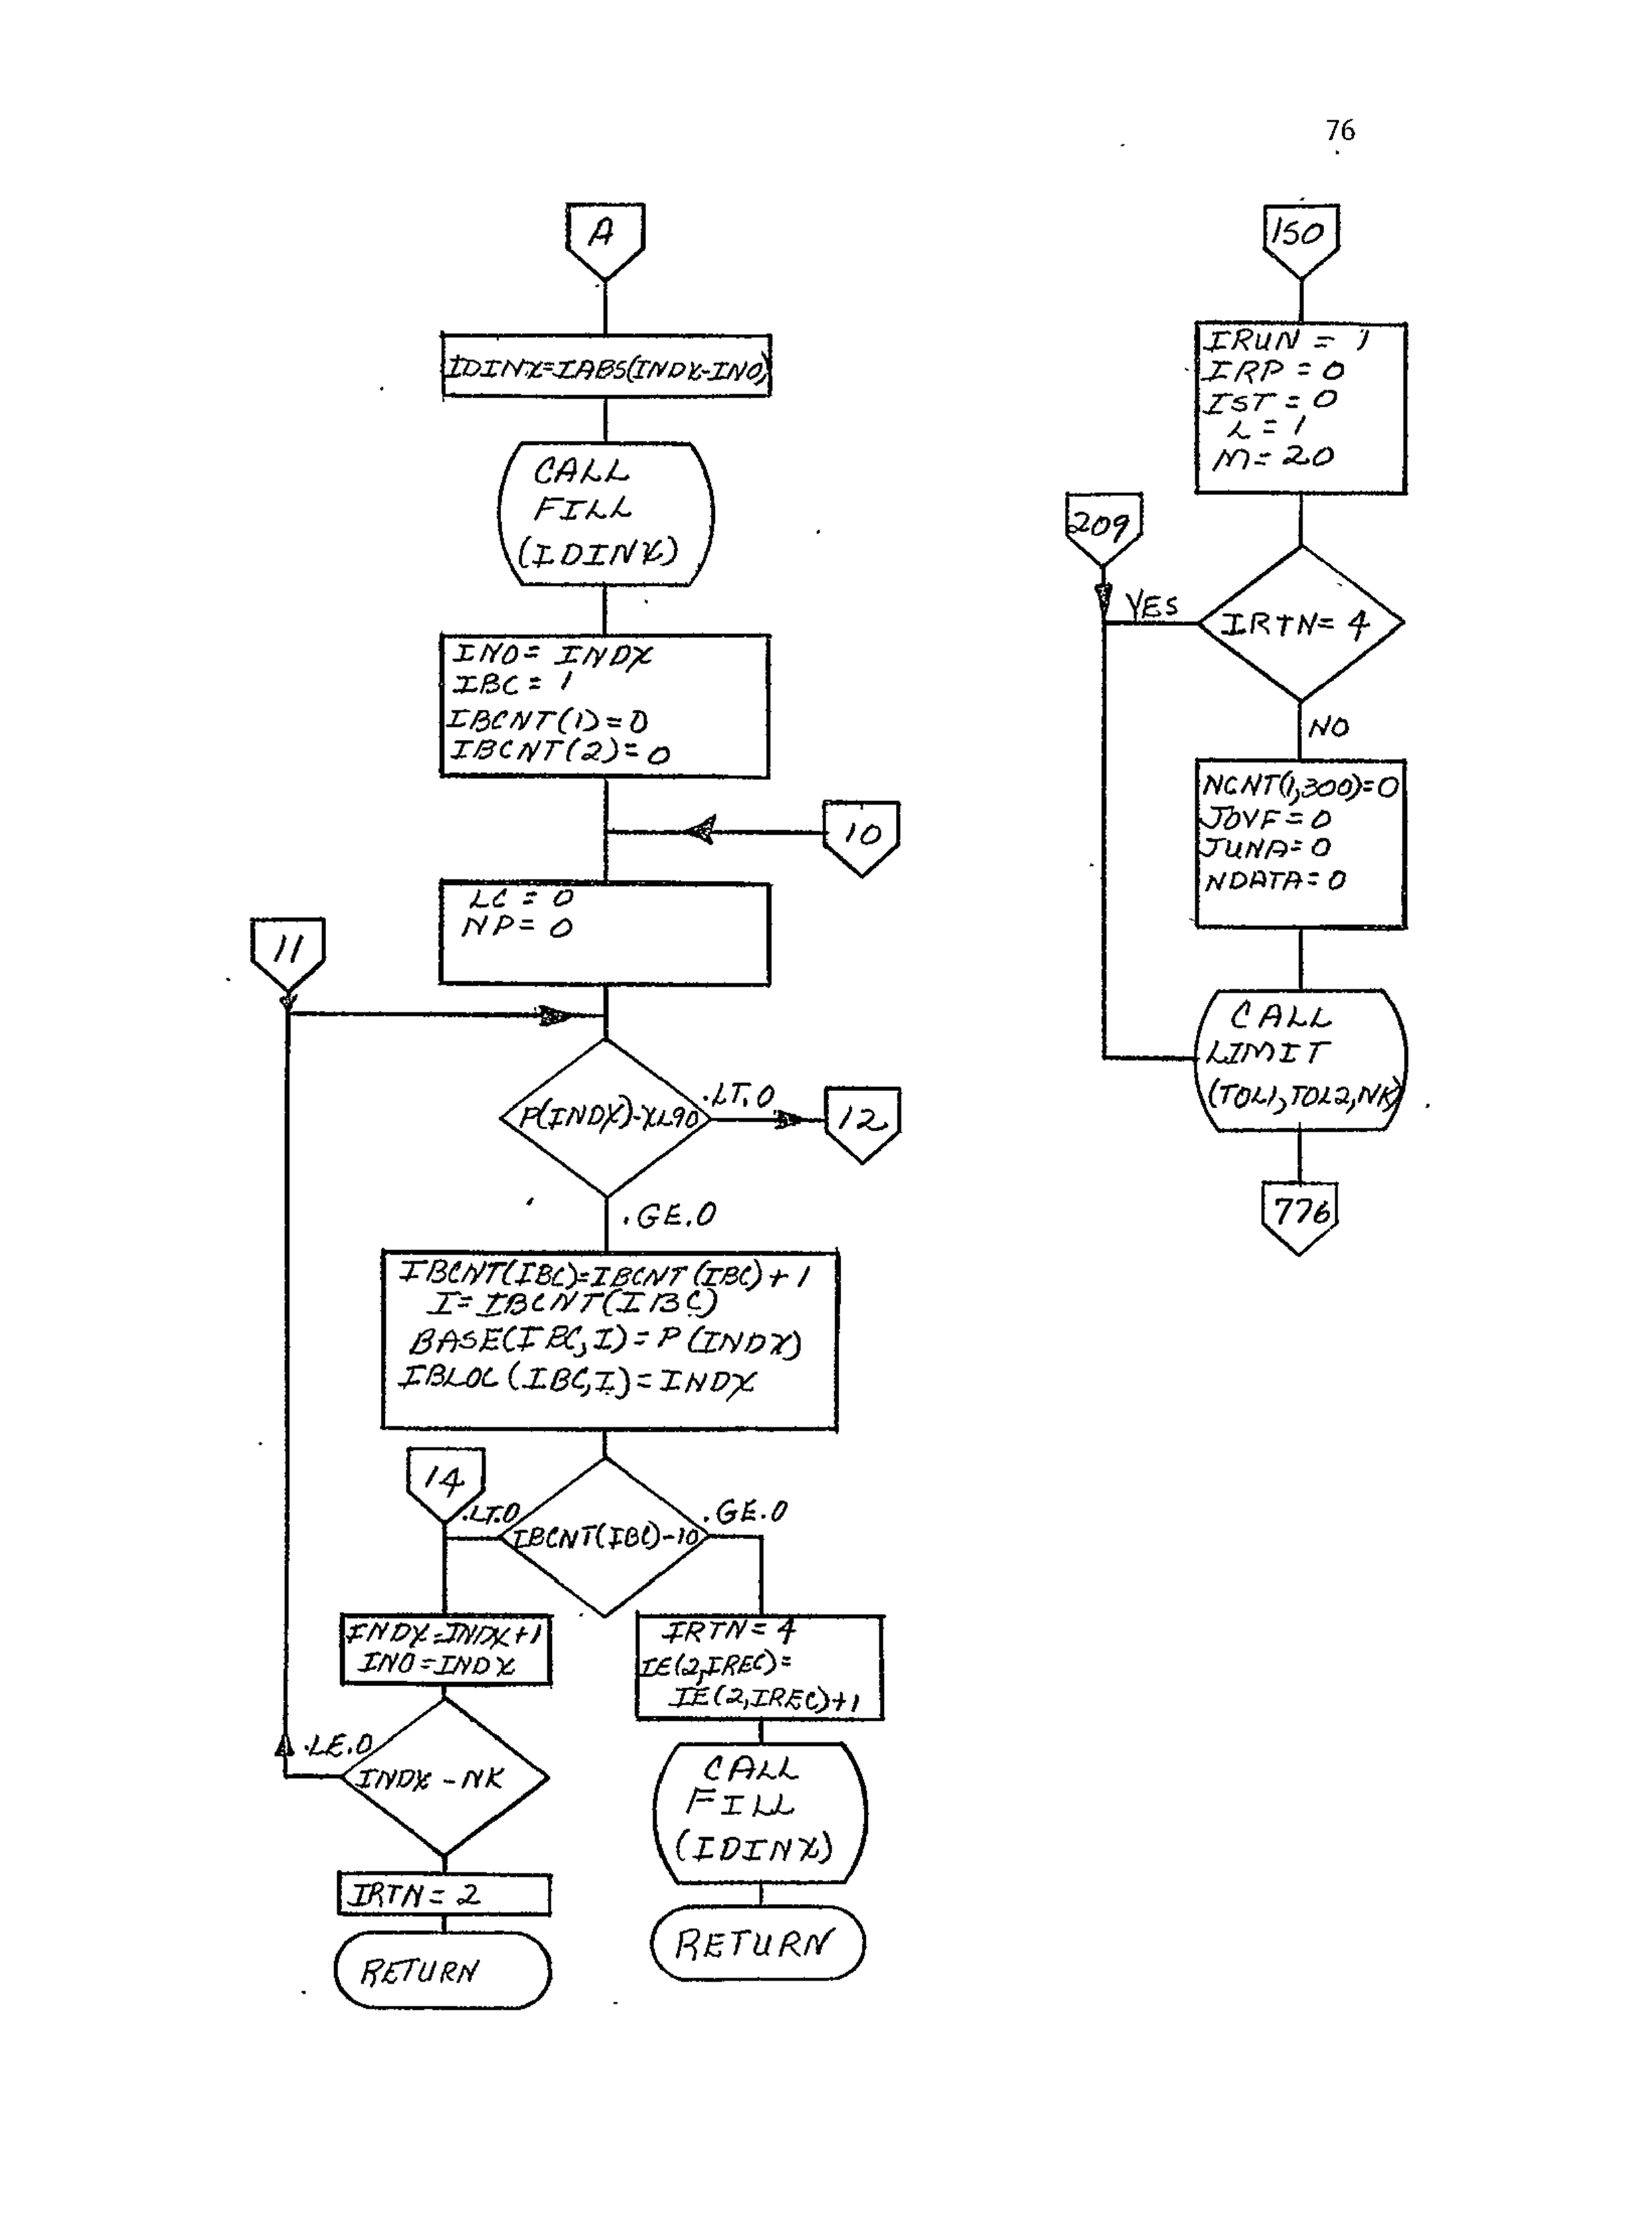 76
A
IDINX=IABS(INDX-INO)
CALL
FILL
(IDINX)
INO= INDX
IBC = 1
IBCNT(1)=0
IBCNT(2)=0
10
LC = 0
NP= 0
11
P(INDX)-XL90
.LT.0
12
.GE.0
IBCNT(IBC)=IBCNT(IBC)+1
I=IBCNT(IBC)
BASE(IBC,I)=P(INDX)
IBLOC(IBC,I)=INDX
14
.LT.0
IBCNT(IBC)-10
.GE.0
INDX=INDX+1
INO=INDX
IRTN=4
IE(2,IREC)=
IE(2,IREC)+1
.LE.0
INDX-NK
CALL
FILL
(IDINX)
IRTN=2
RETURN
RETURN
150
IRUN = 1
IRP = 0
IST = 0
L = 1
M= 20
209
YES
IRTN= 4
NO
NCNT(1,300)=0
JOVF=0
JUNA=0
NDATA=0
CALL
LIMIT
(TOL1,TOL2,NK)
776